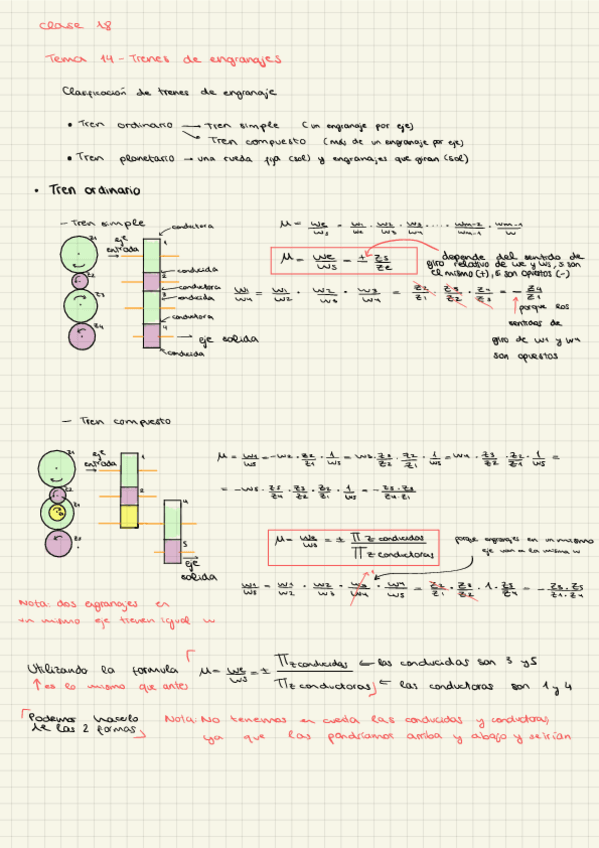 clase 18
Tema 14 - Trenes de engranajes
Clasificación de trenes de engranaje
• Tren ordinario → Tren simple (un engranaje por eje)
→ Tren compuesto (más de un engranaje por eje)
• Tren planetario → una rueda fija (sol) y engranajes que giran (sol)
• Tren ordinario
- Tren simple
eje entrada
conductora
conducida
conductora
conducida
conductora
conducida
eje salida
μ = we/ws = ± zs/ze
depende del sentido de
giro relativo de we y ws, si son
el mismo (+), si son opuestos (-)
w1/w4 = w1/w2 · w2/w3 · w3/w4 = z2/z1 · z3/z2 · z4/z3 = - z4/z1
porque los
sentidos de
giro de w1 y w4
son opuestos
- Tren compuesto
eje entrada
eje
salida
μ = we/ws = ± ∏ z conducidas / ∏ z conductoras
porque engranajes en un mismo
eje van a la misma w
w1/w5 = w1/w2 · w2/w3 · w3/w4 · w4/w5 = z2/z1 · z3/z2 · 1 · z5/z4 = - z3·z5/z1·z4
Nota: dos egranajes en
un mismo eje tienen igual w
Utilizando la formula μ = we/ws = ± ∏ z conducidas / ∏ z conductoras ← las conducidas son 3 y 5
↑ es lo mismo que antes ← las conductoras son 1 y 4
Podemos hacerlo
de las 2 formas
Nota: No tenemos en cueda las conducidas y conductoras,
ya que las pondríamos arriba y abajo y seirían